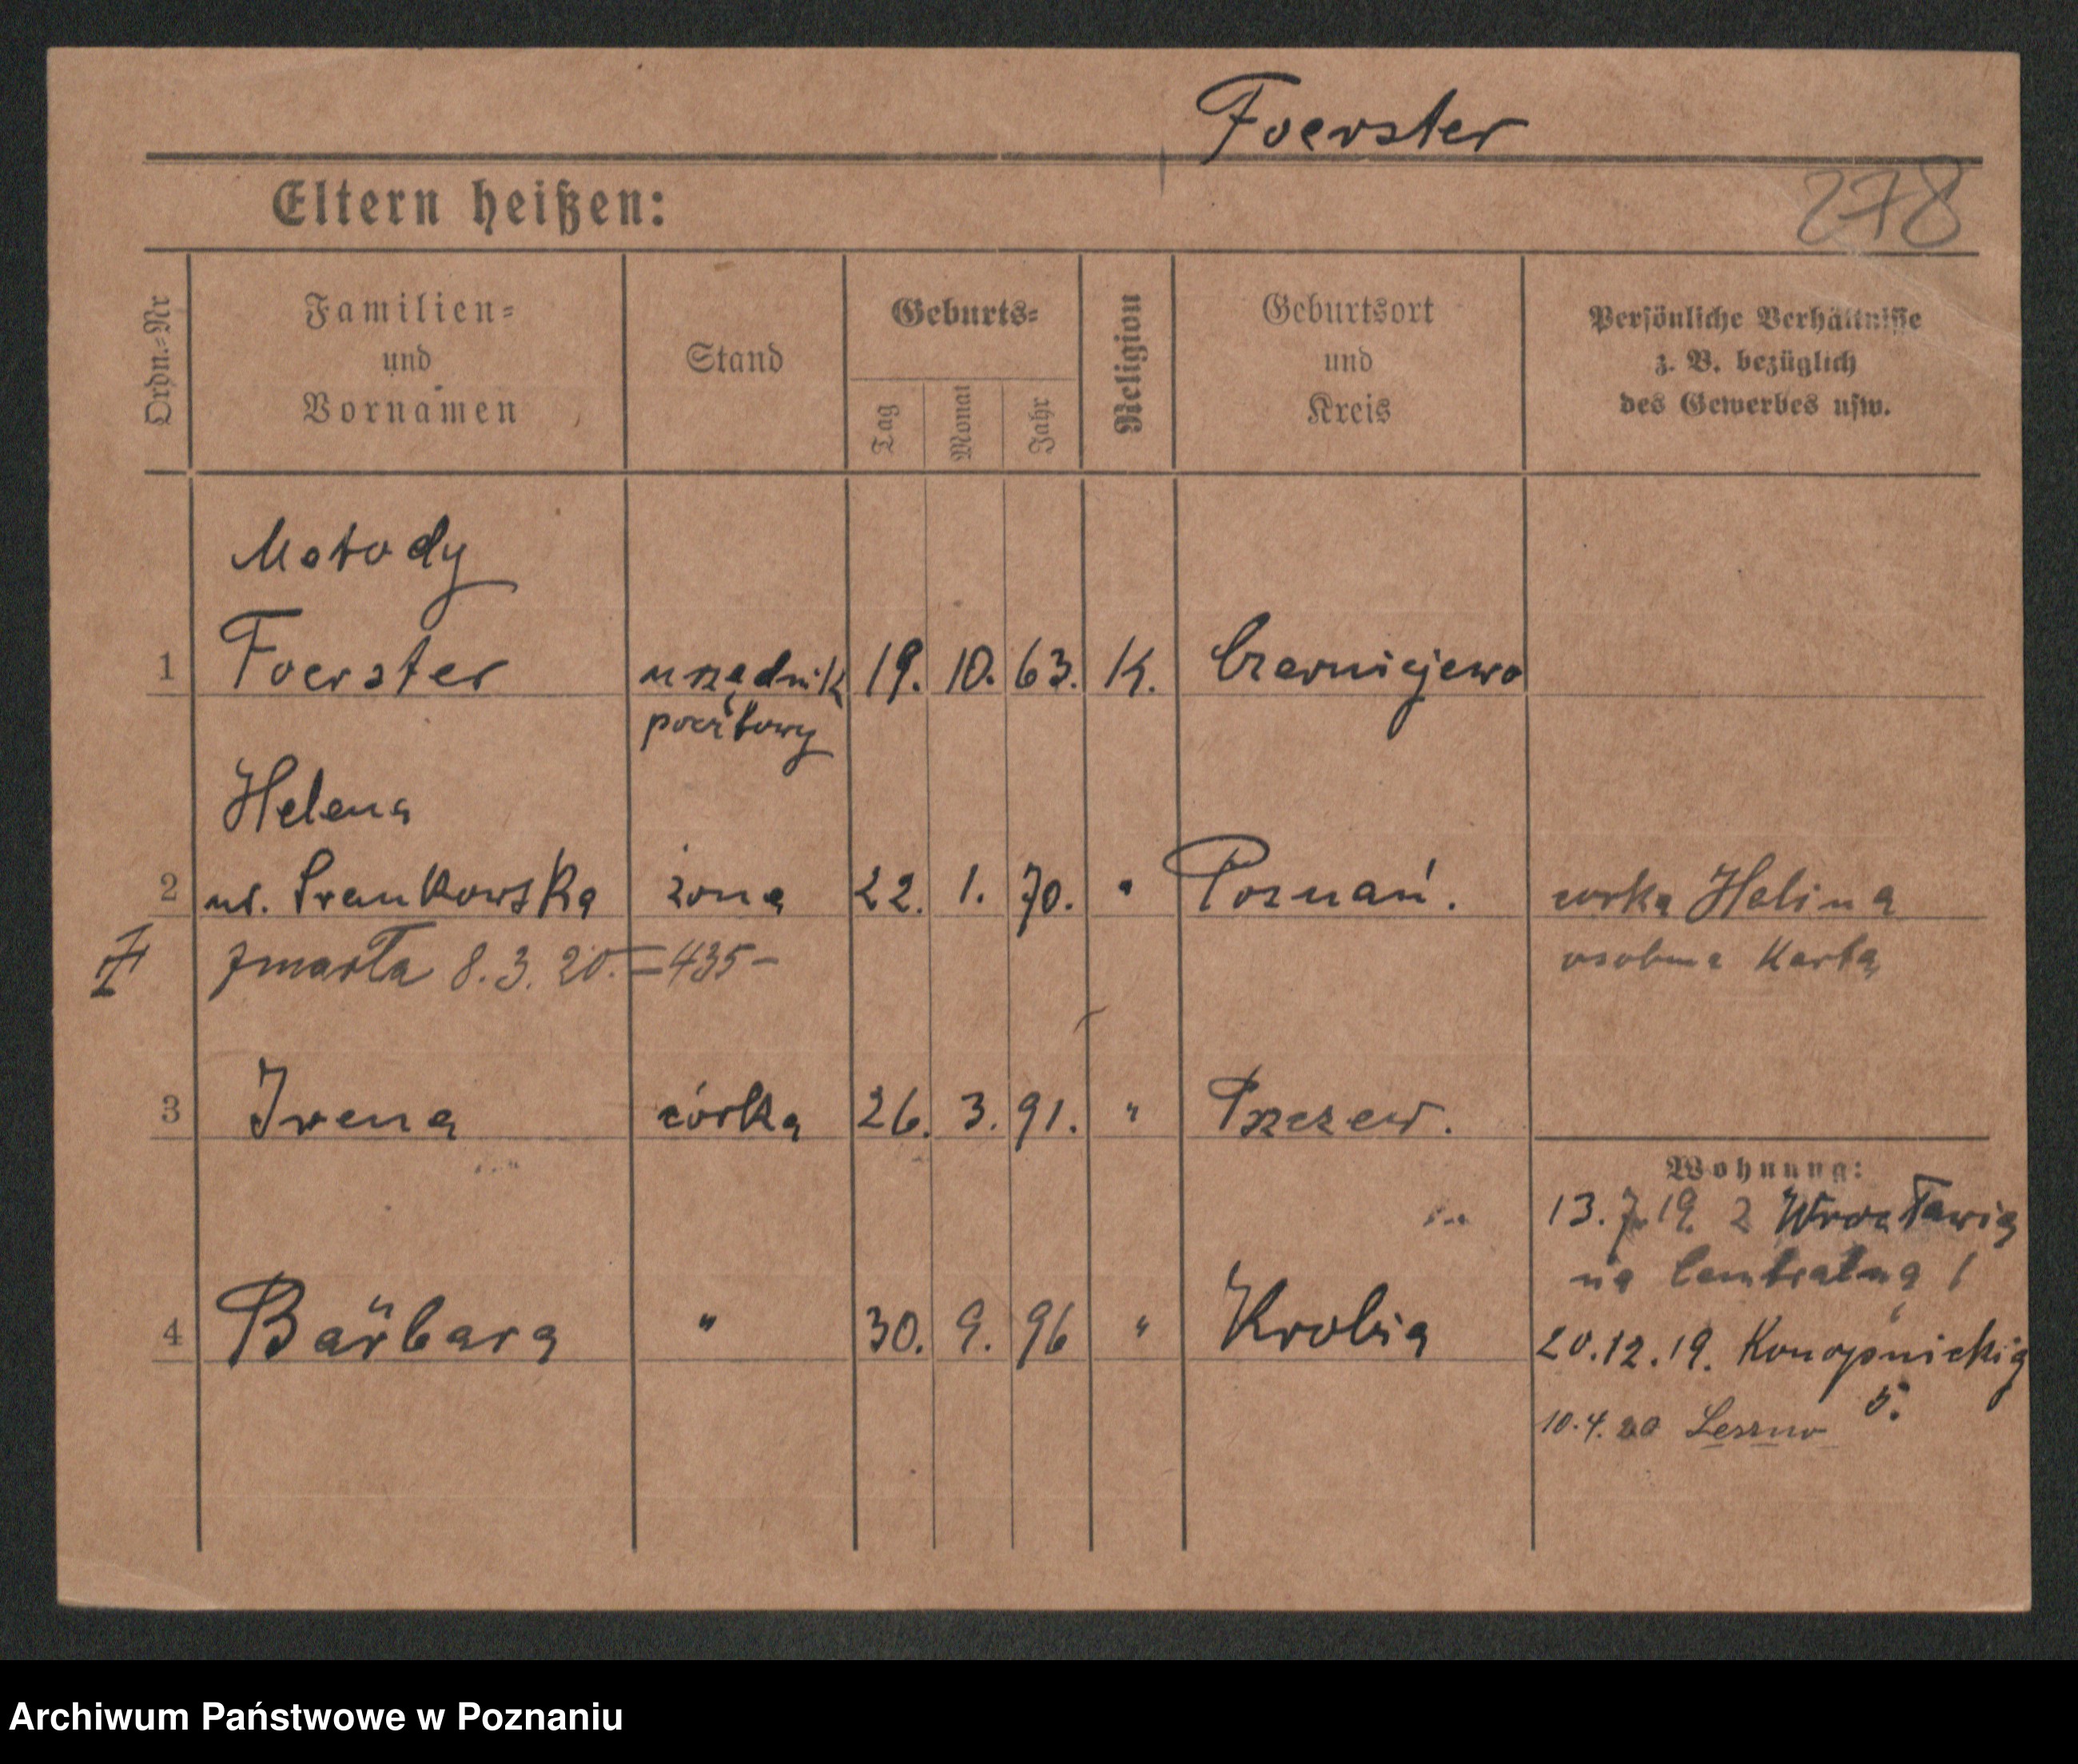 Foerster
Eltern heißen:
278
Ordn.=Nr
Familien=
und
Vornamen
Stand
Geburts=
Tag
Monat
Jahr
Religion
Geburtsort
und
Kreis
Persönliche Verhältnisse
z. B. bezüglich
des Gewerbes usw.
Metody
1 Foerster urzędnik 19. 10. 63. K. Czerniejewo
pocztowy
Helena
2 ur. żona 22. 1. 70. " Poznań. córka Halina
zmarła 8.3.20. =435- osobna Karta
3 Irena córka 26. 3. 91. "
Wohnung:
13.7.19. z Wrocławia
na Centralna 1
4 Barbara " 30. 9. 96 " Krobia 20.12.19. Konopnickiej
5.
10.4.20 Leszno
Archiwum Państwowe w Poznaniu